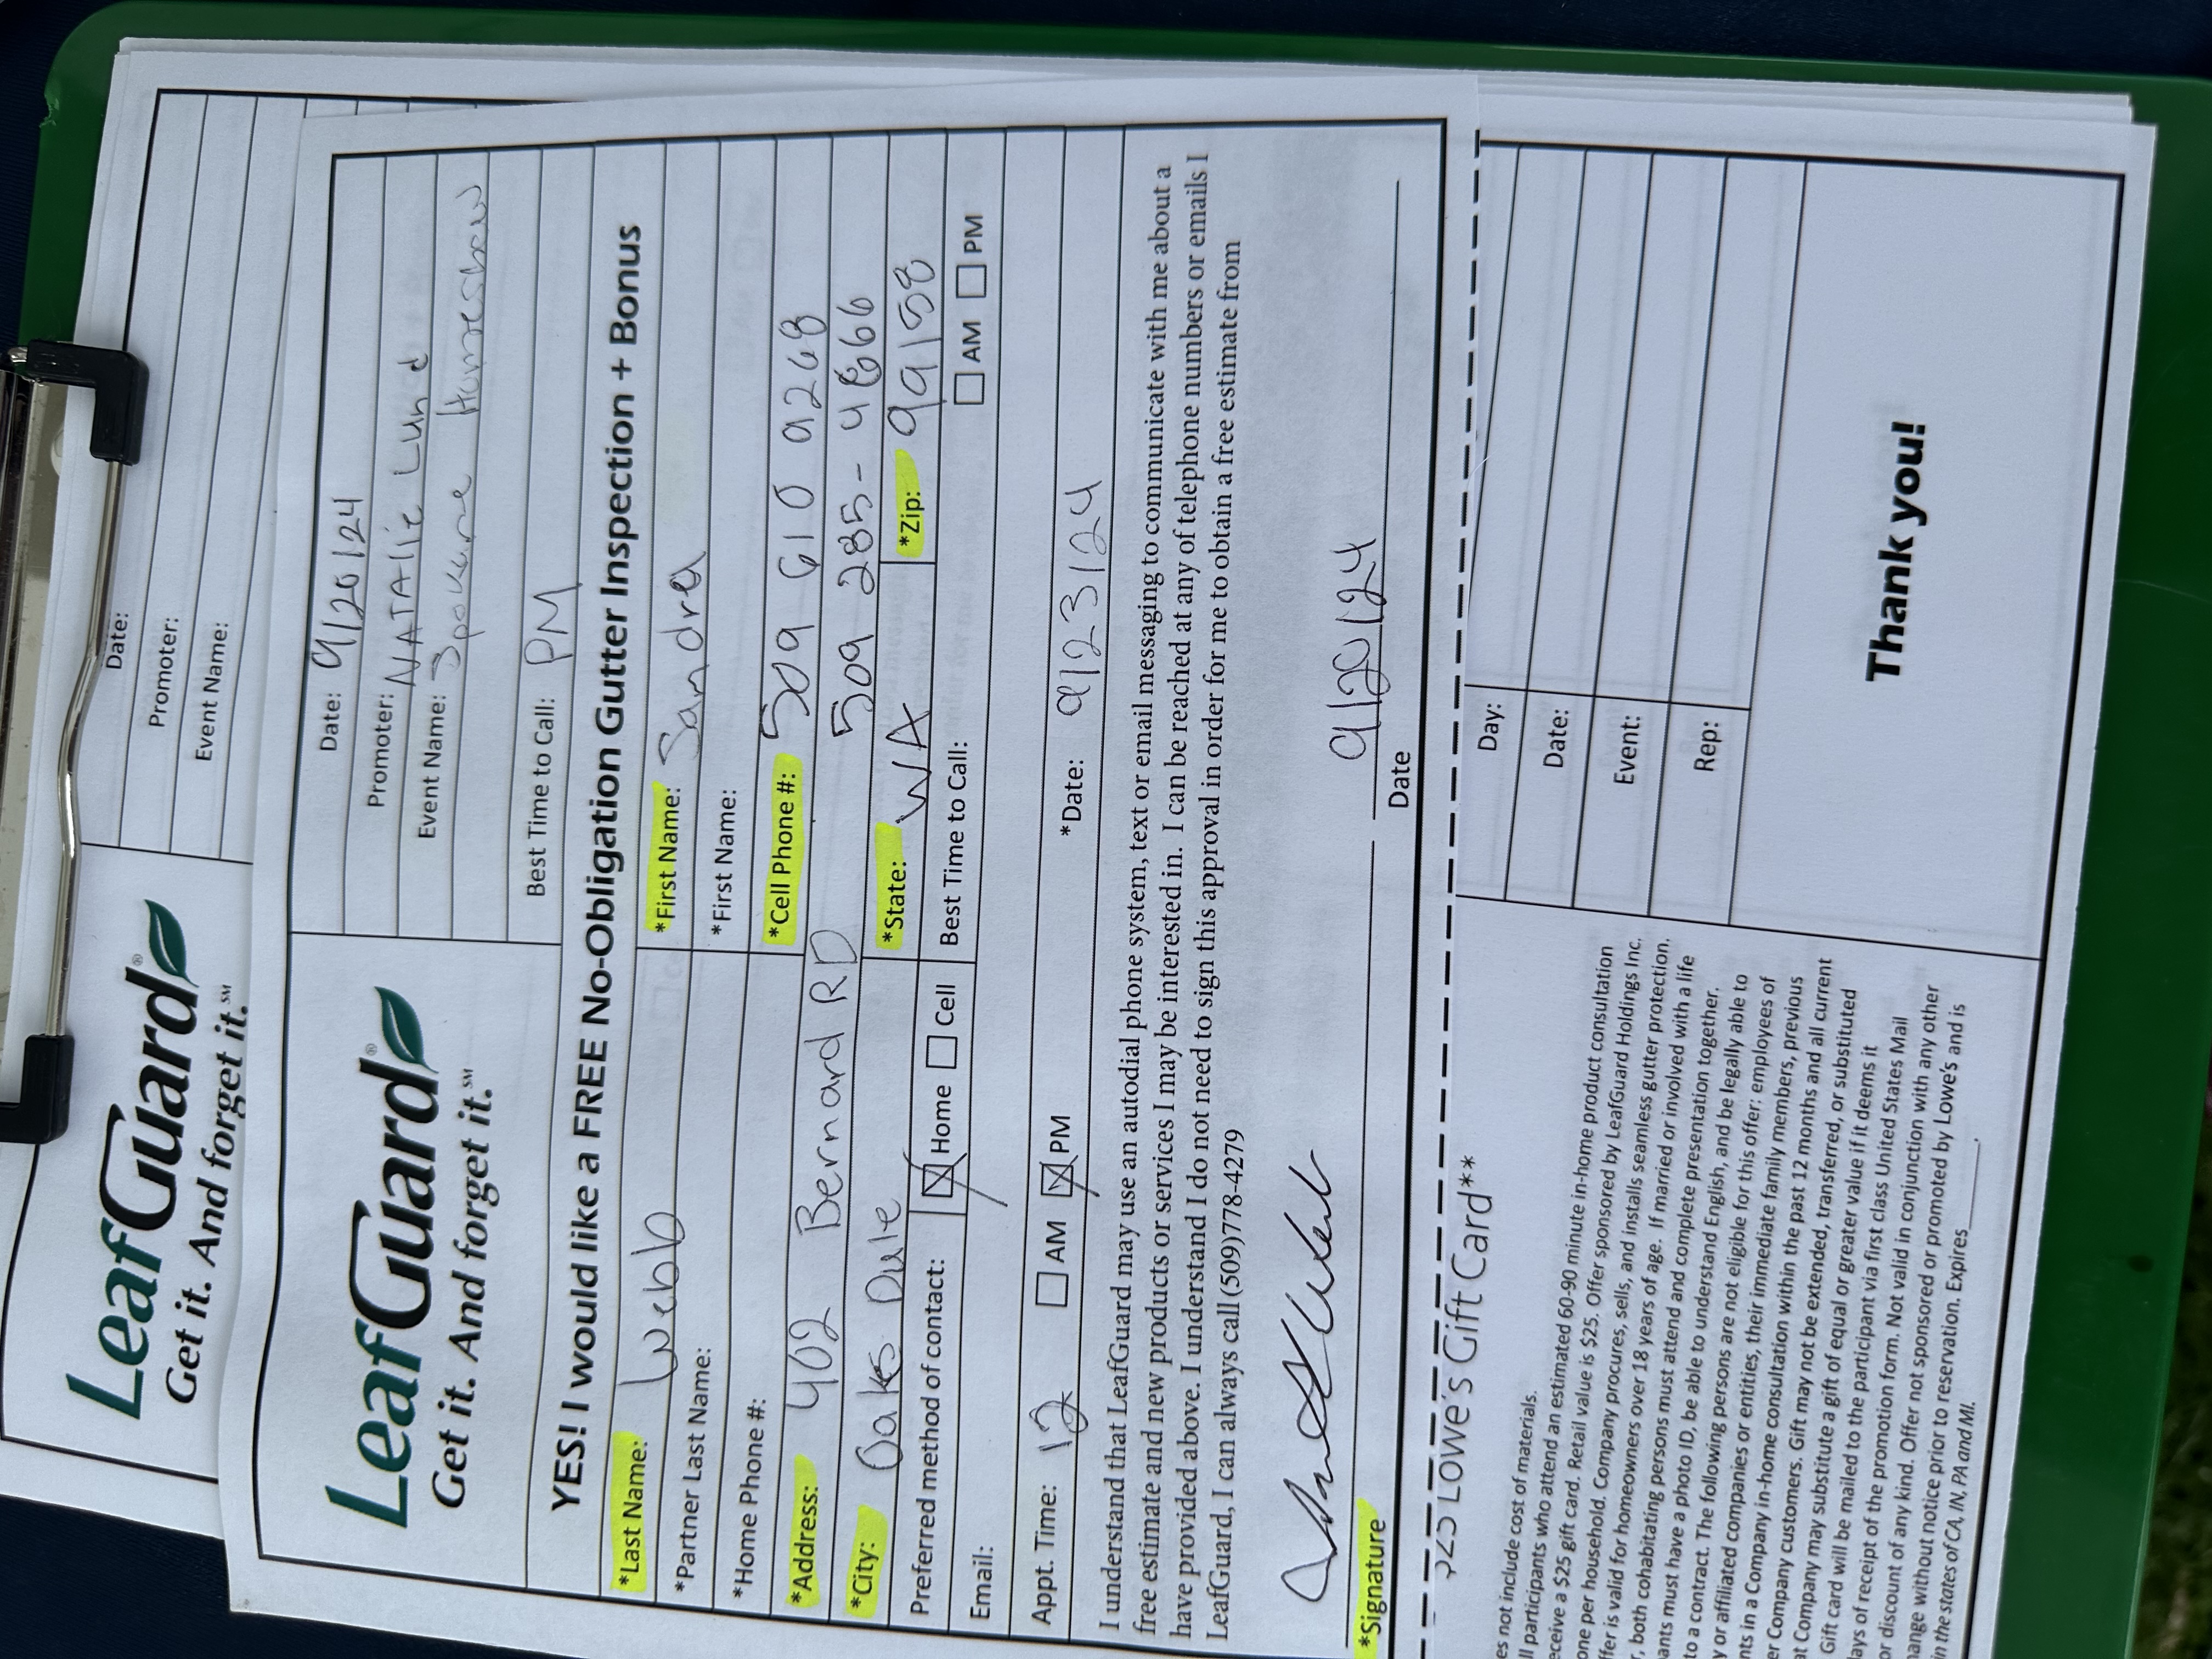 LeafGuard®
Get it. And forget it.℠
Date:
Promoter:
Event Name:
LeafGuard®
Get it. And forget it.℠
Date: 9/20/24
Promoter: NATAlie Lund
Event Name: Spokane Homeshow
Best Time to Call: PM
YES! I would like a FREE No-Obligation Gutter Inspection + Bonus
*Last Name: Webb *First Name: Sandra
*Partner Last Name: *First Name:
*Home Phone #: *Cell Phone #: 509 610 9268
*Address: 402 Bernard RD 509 285-4866
*City: Oakes Dale *State: WA *Zip: 99158
Preferred method of contact: ☒ Home ☐ Cell Best Time to Call: ☐ AM ☐ PM
Email:
Appt. Time: 12 ☐ AM ☒ PM *Date: 9/23/24
I understand that LeafGuard may use an autodial phone system, text or email messaging to communicate with me about a
free estimate and new products or services I may be interested in. I can be reached at any of telephone numbers or emails I
have provided above. I understand I do not need to sign this approval in order for me to obtain a free estimate from
LeafGuard, I can always call (509)778-4279
9/20/24
*Signature Date
$25 Lowe's Gift Card**
es not include cost of materials.
ll participants who attend an estimated 60-90 minute in-home product consultation
eceive a $25 gift card. Retail value is $25. Offer sponsored by LeafGuard Holdings Inc.
one per household. Company procures, sells, and installs seamless gutter protection.
ffer is valid for homeowners over 18 years of age. If married or involved with a life
r, both cohabitating persons must attend and complete presentation together.
ants must have a photo ID, be able to understand English, and be legally able to
to a contract. The following persons are not eligible for this offer: employees of
y or affiliated companies or entities, their immediate family members, previous
nts in a Company in-home consultation within the past 12 months and all current
er Company customers. Gift may not be extended, transferred, or substituted
at Company may substitute a gift of equal or greater value if it deems it
Gift card will be mailed to the participant via first class United States Mail
lays of receipt of the promotion form. Not valid in conjunction with any other
or discount of any kind. Offer not sponsored or promoted by Lowe's and is
hange without notice prior to reservation. Expires________.
in the states of CA, IN, PA and MI.
Day:
Date:
Event:
Rep:
Thank you!